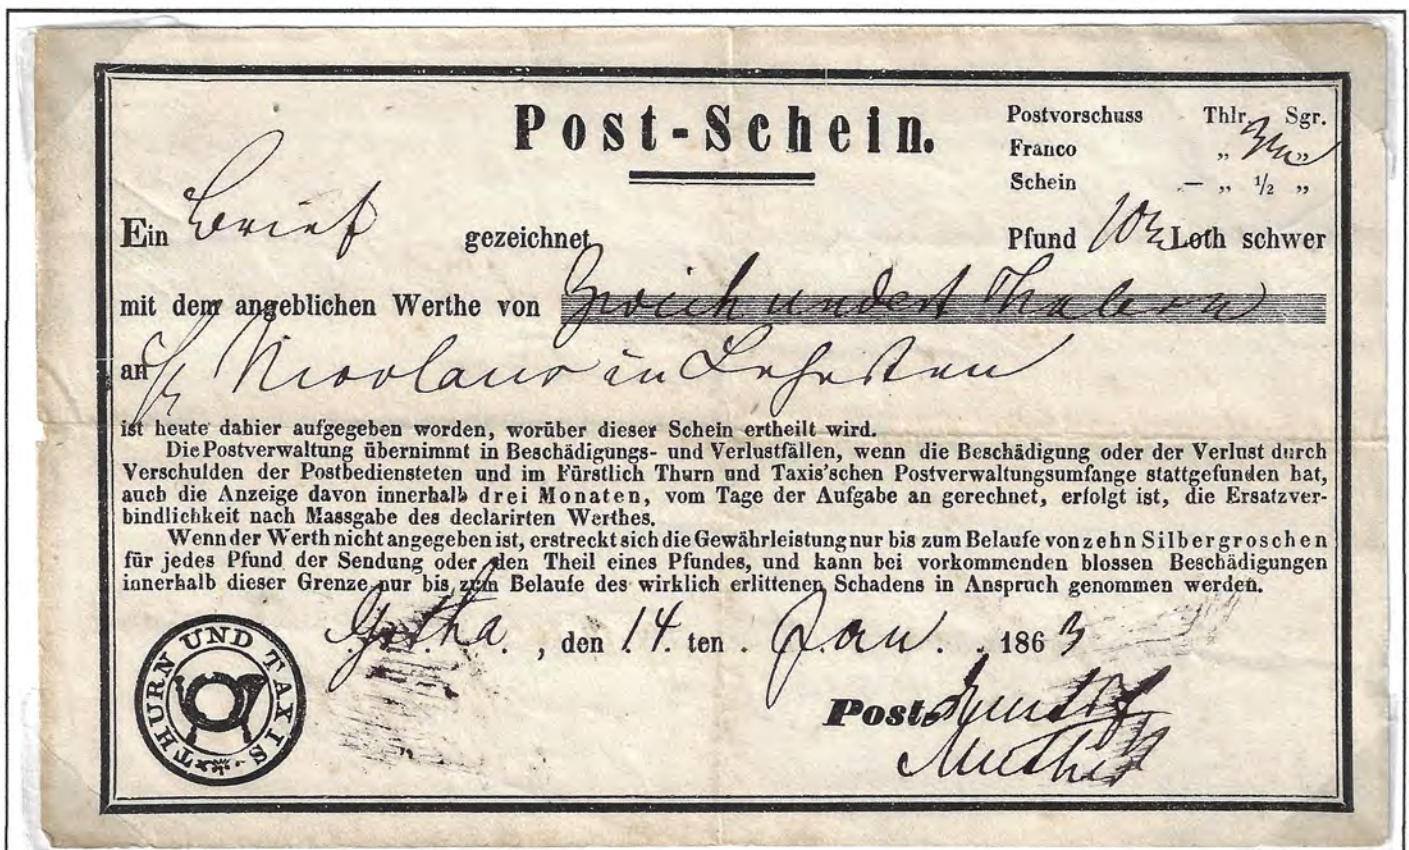 Post-Schein.
Postvorschuss Thlr. Sgr.
Franco „ „
Schein — „ ½ „
Ein Brief gezeichnet Pfund Loth schwer
mit dem angeblichen Werthe von Zweihundert Thalern
an Nicolaus in Lehesten
ist heute dahier aufgegeben worden, worüber dieser Schein ertheilt wird.
Die Postverwaltung übernimmt in Beschädigungs- und Verlustfällen, wenn die Beschädigung oder der Verlust durch
Verschulden der Postbediensteten und im Fürstlich Thurn und Taxis'schen Postverwaltungsumfange stattgefunden hat,
auch die Anzeige davon innerhalb drei Monaten, vom Tage der Aufgabe an gerechnet, erfolgt ist, die Ersatzver-
bindlichkeit nach Massgabe des declarirten Werthes.
Wenn der Werth nicht angegeben ist, erstreckt sich die Gewährleistung nur bis zum Belaufe von zehn Silbergroschen
für jedes Pfund der Sendung oder den Theil eines Pfundes, und kann bei vorkommenden blossen Beschädigungen
innerhalb dieser Grenze nur bis zum Belaufe des wirklich erlittenen Schadens in Anspruch genommen werden.
Gotha, den 14. ten Jan. 1863
THURN UND TAXIS
Post-